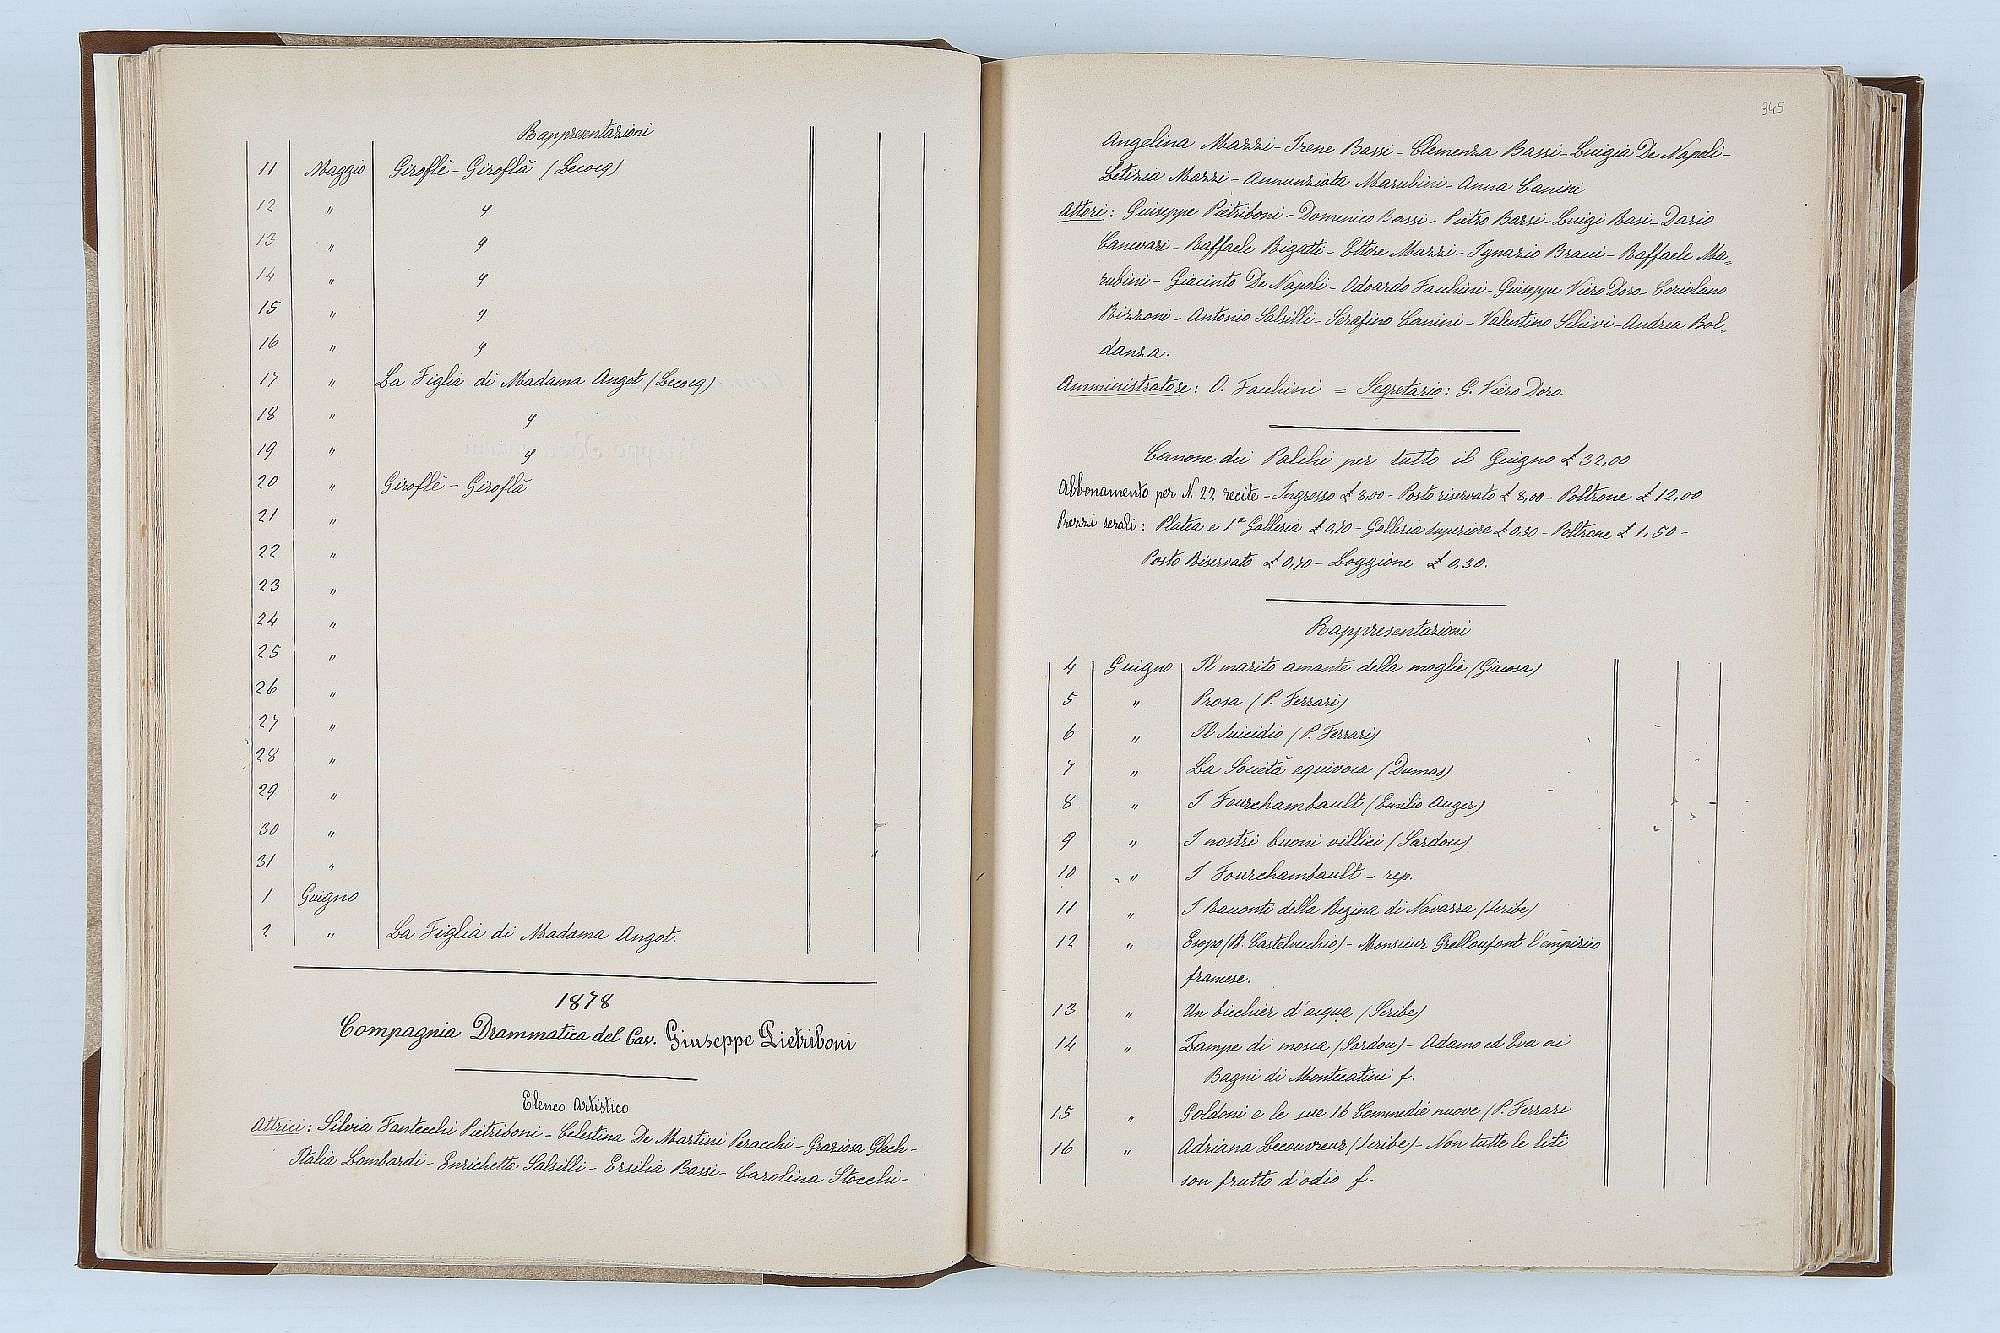 Rappresentazioni
11 Maggio Giroflè - Giroflà (Lecocq)
12 " "
13 " "
14 " "
15 " "
16 " "
17 " La Figlia di Madama Angot (Lecocq)
18 " "
19 " "
20 " Giroflè - Giroflà
21 "
22 "
23 "
24 "
25 "
26 "
27 "
28 "
29 "
30 "
31 "
1 Giugno
2 " La Figlia di Madama Angot.
1878
Compagnia Drammatica del Cav. Giuseppe Pietriboni
Elenco Artistico
Attrici: Silvia Fantecchi Pietriboni - Celestina De Martini Peracchi - Graziosa Glech -
Italia Lombardi - Enrichetta Salsilli - Ersilia Bassi - Carolina Stocchi -
345
Angelina Mazzi - Irene Bassi - Clemenza Bassi - Luigia De Napoli -
Letizia Mazzi - Annunziata Marubini - Anna Canini
Attori: Giuseppe Pietriboni - Domenico Bassi - Pietro Barsi - Luigi Rasi - Dario
Cancvari - Raffaele Bigatti - Ettore Mazzi - Ignazio Bracci - Raffaele Ma=
rubini - Giacinto De Napoli - Odoardo Facchini - Giuseppe Viero Doro - Coriolano
Rizzoni - Antonio Salsilli - Serafino Canini - Valentino Schivi - Andrea Bol=
danza.
Amministratore: O. Facchini = Segretario: G. Viero Doro.
Canone dei Palchi per tutto il Giugno £ 32,00
Abbonamento per N. 22 recite - Ingresso £ 8,00 - Posto riservato £ 8,00 - Poltrone £ 12,00
Prezzi serali: Platea e 1ª Galleria £ 0,70 - Galleria Superiore £ 0,50 - Poltrone £ 1,50 -
Posto Riservato £ 0,70 - Loggione £ 0,30.
Rappresentazioni
4 Giugno Il marito amante della moglie (Giacosa)
5 " Prosa (P. Ferrari)
6 " Il Suicidio (P. Ferrari)
7 " La Società equivoca (Dumas)
8 " I Fourchambault (Emilio Auger)
9 " I nostri buoni villici (Sardou)
10 " I Fourchambault - rep.
11 " I Racconti della Regina di Navarra (Scribe)
12 " Esopo (R. Castelvecchio) - Monsieur l'empirico
francese.
13 " Un bicchier d'acqua (Scribe)
14 " Zampe di mosca (Sardou) - Adamo ed Eva ai
Bagni di Montecatini f.
15 " Goldoni e le sue 16 Commedie nuove (P. Ferrari
16 " Adriana Lecouvreur (Scribe) - Non tutte le liti
son frutto d'odio f.